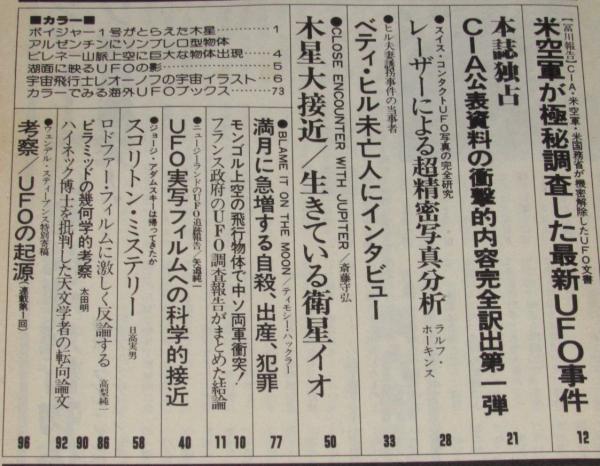 ■カラー■
ボイジャー1号がとらえた木星……………1
アルゼンチンにソンブレロ型物体
ピレネー山脈上空に巨大な物体出現……4
湖面に映るUFOの影……………5
宇宙飛行士レオーノフの宇宙イラスト……6
カラーでみる海外UFOブックス……73
【富川報告】CIA・米空軍・米国務省が機密解除したUFO文書
米空軍が極秘調査した最新UFO事件
12
本誌独占
CIA公表資料の衝撃的内容完全訳出第一弾
21
●スイス・コンタクトUFO写真の完全研究
レーザーによる超精密写真分析
ラルフ・ホーキンス
28
●ヒル夫妻誘拐事件の当事者
ベティ・ヒル未亡人にインタビュー
33
●CLOSE ENCOUNTER WITH JUPITER/斎藤守弘
木星大接近/生きている衛星イオ
50
●BLAME IT ON THE MOON/ティモシー・ハックラー
満月に急増する自殺、出産、犯罪
77
モンゴル上空の飛行物体で中ソ両軍衝突!
10
フランス政府のUFO調査報告がまとめた結論
11
●ニュージーランドのUFO追跡報告/矢追純一
UFO実写フィルムへの科学的接近
40
●ジョージ・アダムスキーは帰ってきたか
スコリトン・ミステリー
日高実男
58
ロドファー・フィルムに激しく反論する
高梨純一
86
ピラミッドの幾何学的考察
太田明
90
ハイネック博士を批判した天文学者の転向論文
92
●ウェンデル・スティーブンス特別寄稿
考察/UFOの起源(連載第1回)
96